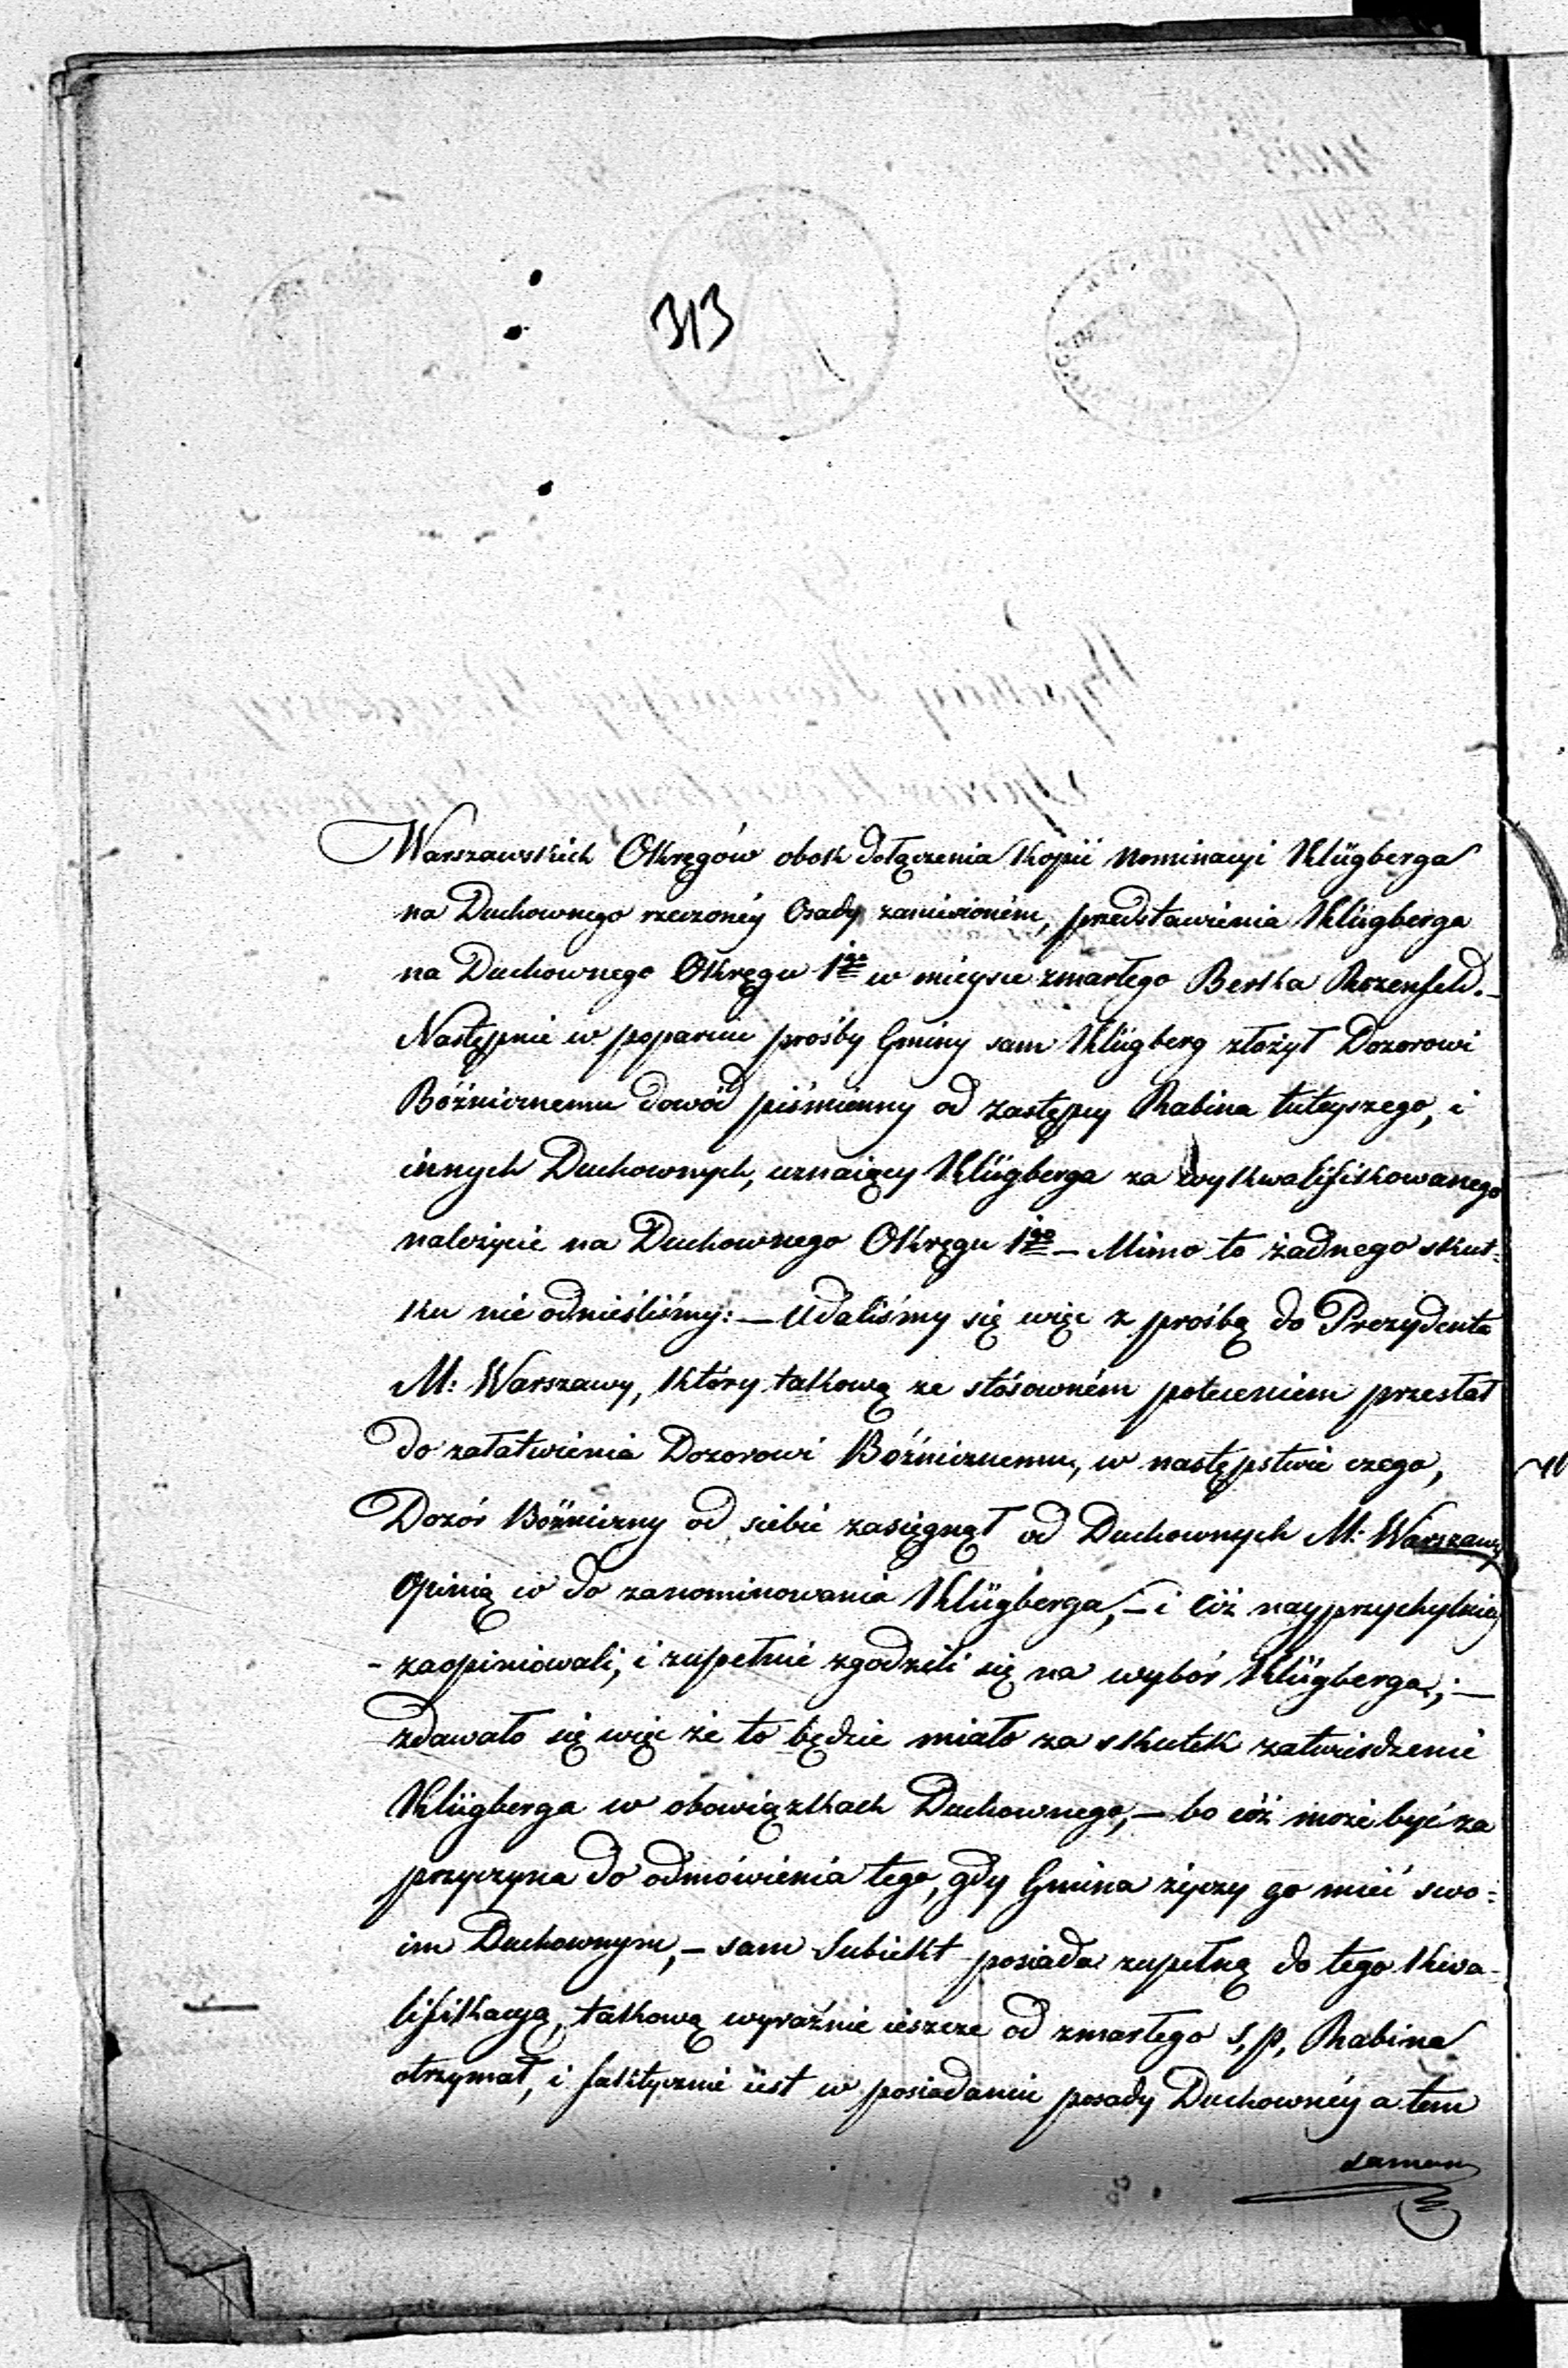 313
Warszawskich Okręgów obok dołączenia kopii nominacyi Klügberga
na Duchownego rzeczonéy Osady zaniesioném, przedstawienia Klügberga
na Duchownego Okręgu 1go w mieysce zmarłego Berka Rozenfeld.
Następnie w poparciu prośby Gminy sam Klügberg złożył Dozorowi
Bóźnicznemu dowód piśmienny od Zastępcy Rabina tuteyszego, i
innych Duchownych, uznaiący Klügberga za wykwalifikowanego
należycie na Duchownego Okręgu 1go – Mimo to żadnego skut:
ku nie odnieśliśmy: – Udaliśmy się więc z prośbą do Prezydenta
M: Warszawy, który takową ze stósowném poleceniem przesłał
do załatwienia Dozorowi Bóźnicznemu, w następstwie czego,
Dozór Bóźniczny od siebie zasięgnął od Duchownych M: Warszawy
Opinią co do zanominowania Klügberga, – i cóż nayprzychylniey
- zaopiniowali, i zupełnie zgodzili się na wybór Klügberga; –
zdawało się więc że to będzie miało za skutek zatwierdzenie
Klügberga w obowiązkach Duchownego, – bo cóż może być za
przyczyna do odmówienia tego, gdy Gmina życzy go mieć swo:
im Duchownym, – sam Subiekt posiada zupełną do tego kwa-
lifikacyą, takową wyraźnie ieszcze od zmarłego s, p, Rabina
otrzymał, i faktycznie iest w posiadaniu posady Duchownéy a tem
samem